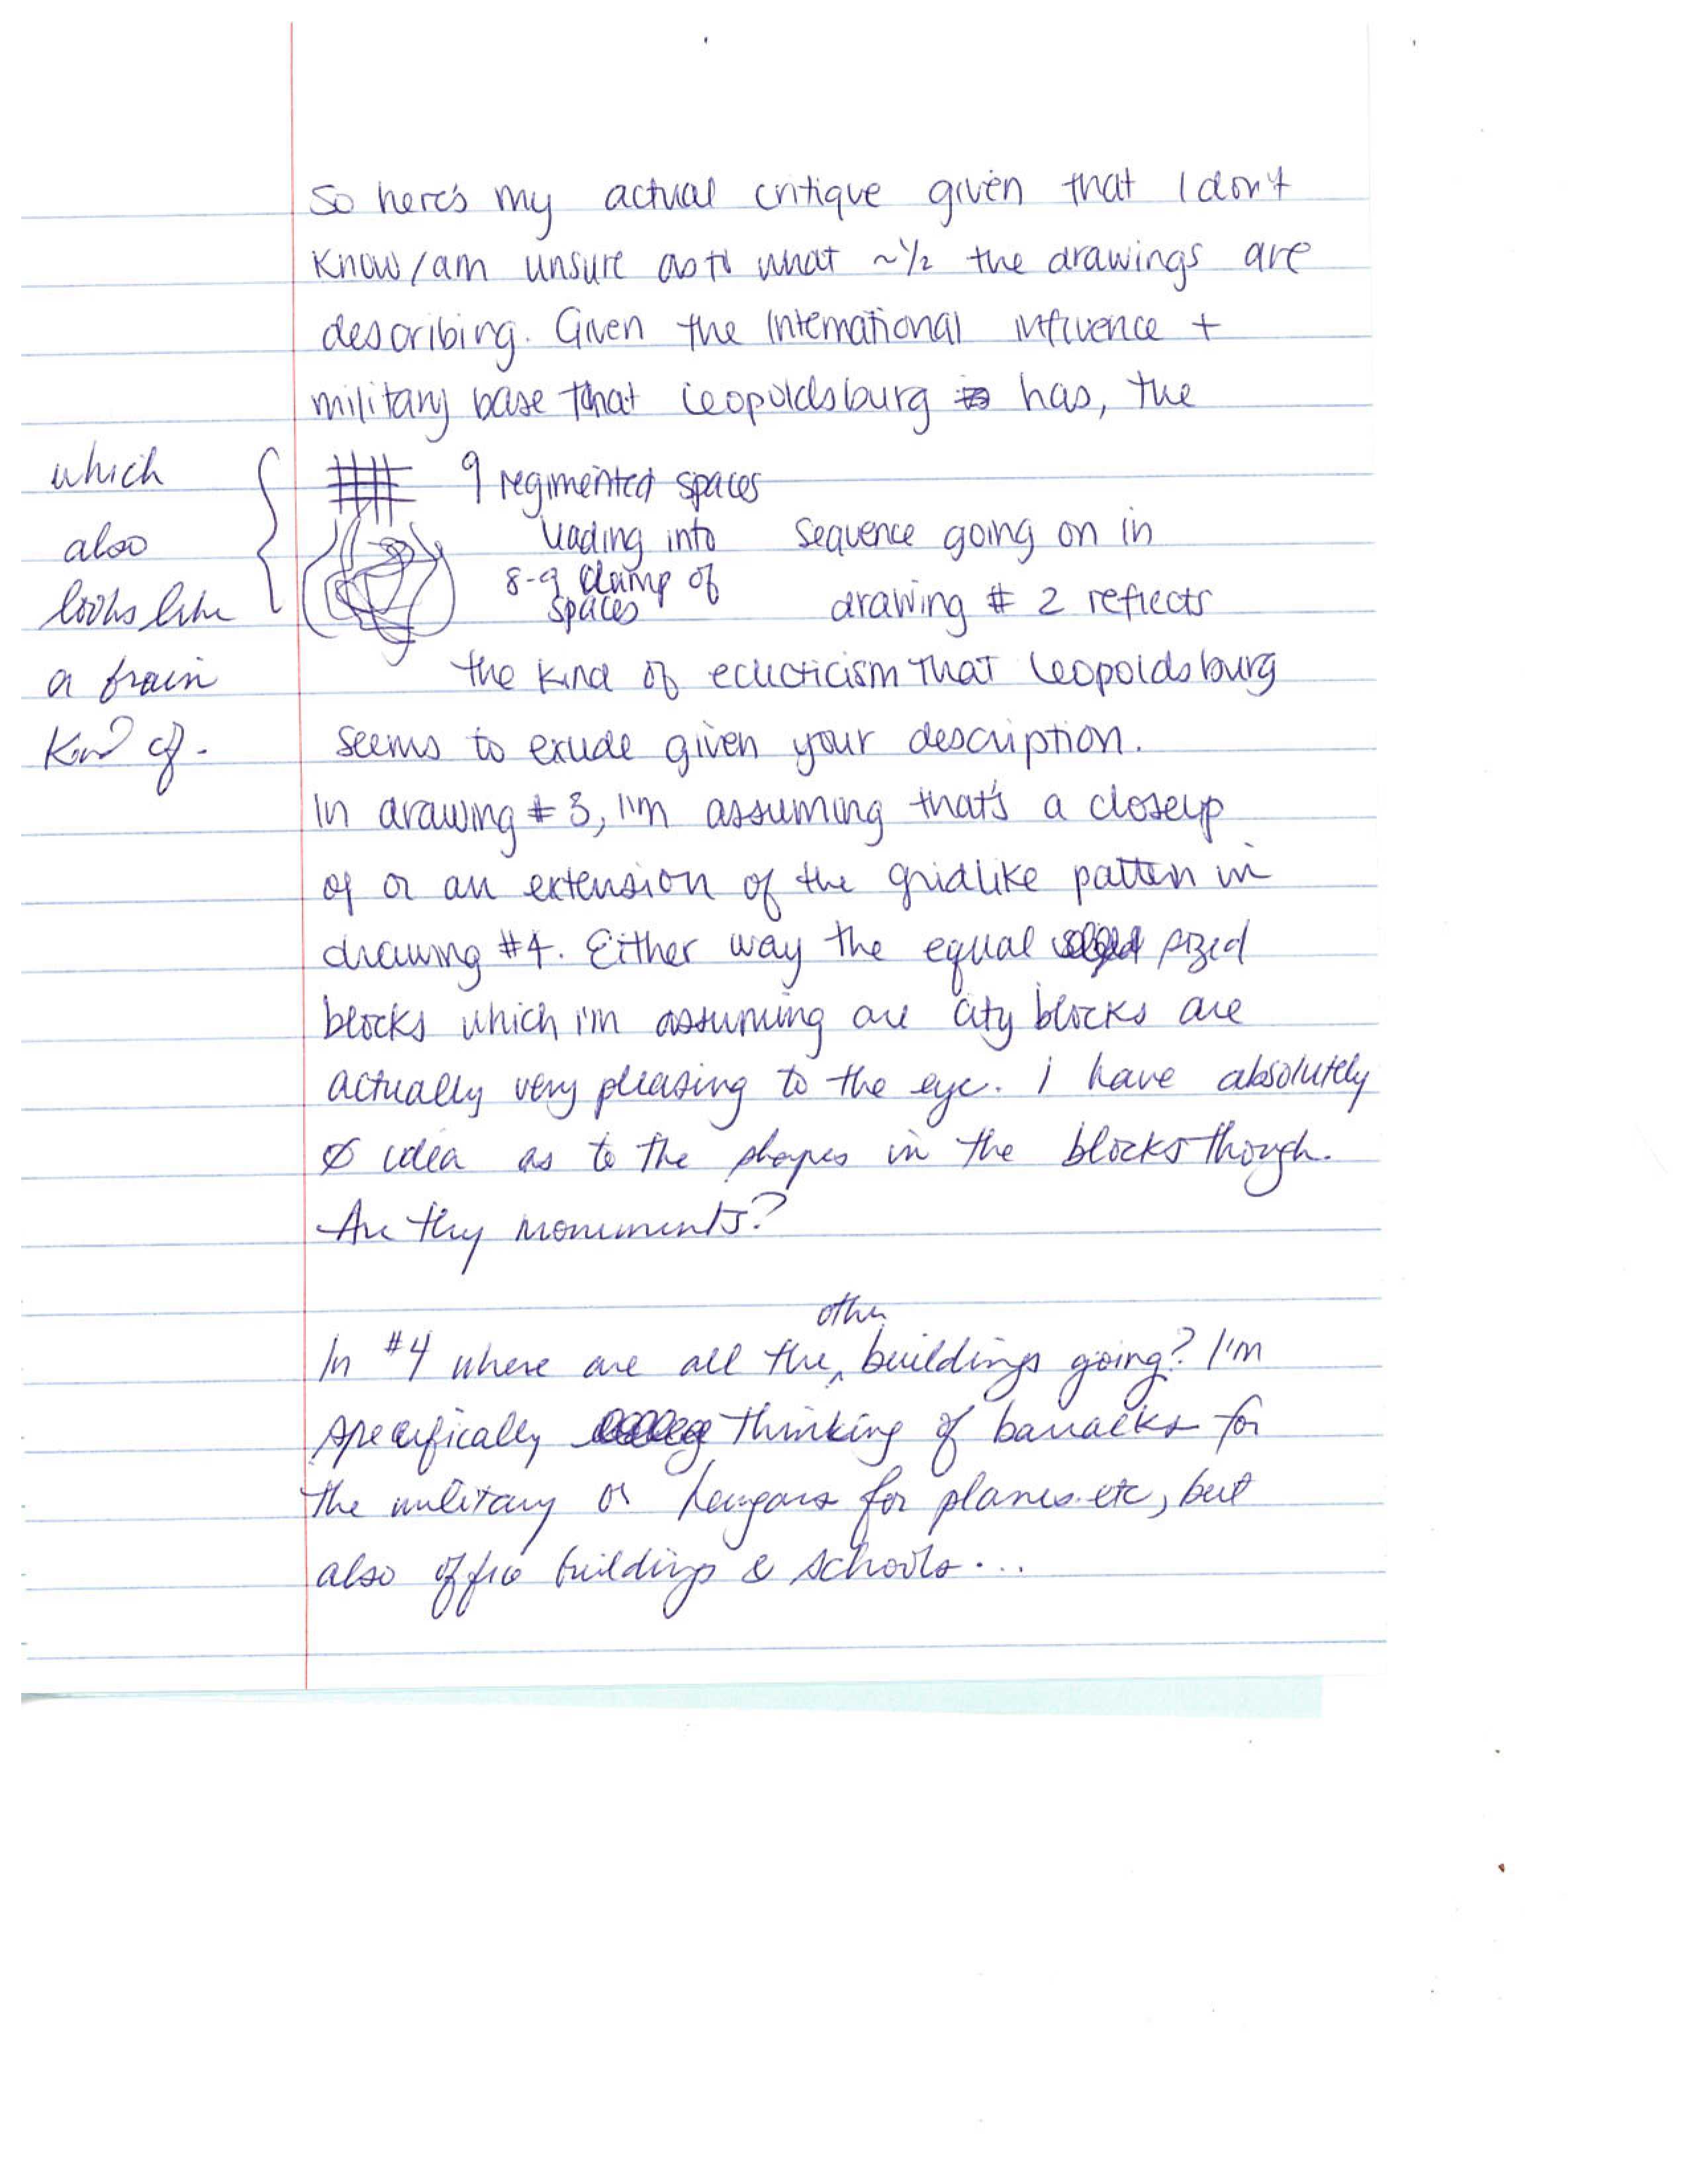 So here's my actual critique given that I don't
know/am unsure as to what ~1/2 the drawings are
describing. Given the International influence +
military base that Leopoldsburg has, the
9 regimented spaces
leading into
8-9 clamp of
spaces
sequence going on in
drawing # 2 reflects
which
also
looks like
a brain
kind of.
the kind of eclecticism that Leopoldsburg
seems to exude given your description.
In drawing # 3, I'm assuming that's a closeup
of or an extension of the gridlike pattern in
drawing #4. Either way the equal sized
blocks which i'm assuming are city blocks are
actually very pleasing to the eye. I have absolutely
Ø idea as to the shapes in the blocks though.
Are they monuments?
In #4 where are all the other buildings going? I'm
specifically thinking of barracks for
the military or hangars for planes. etc, but
also office buildings & schools...